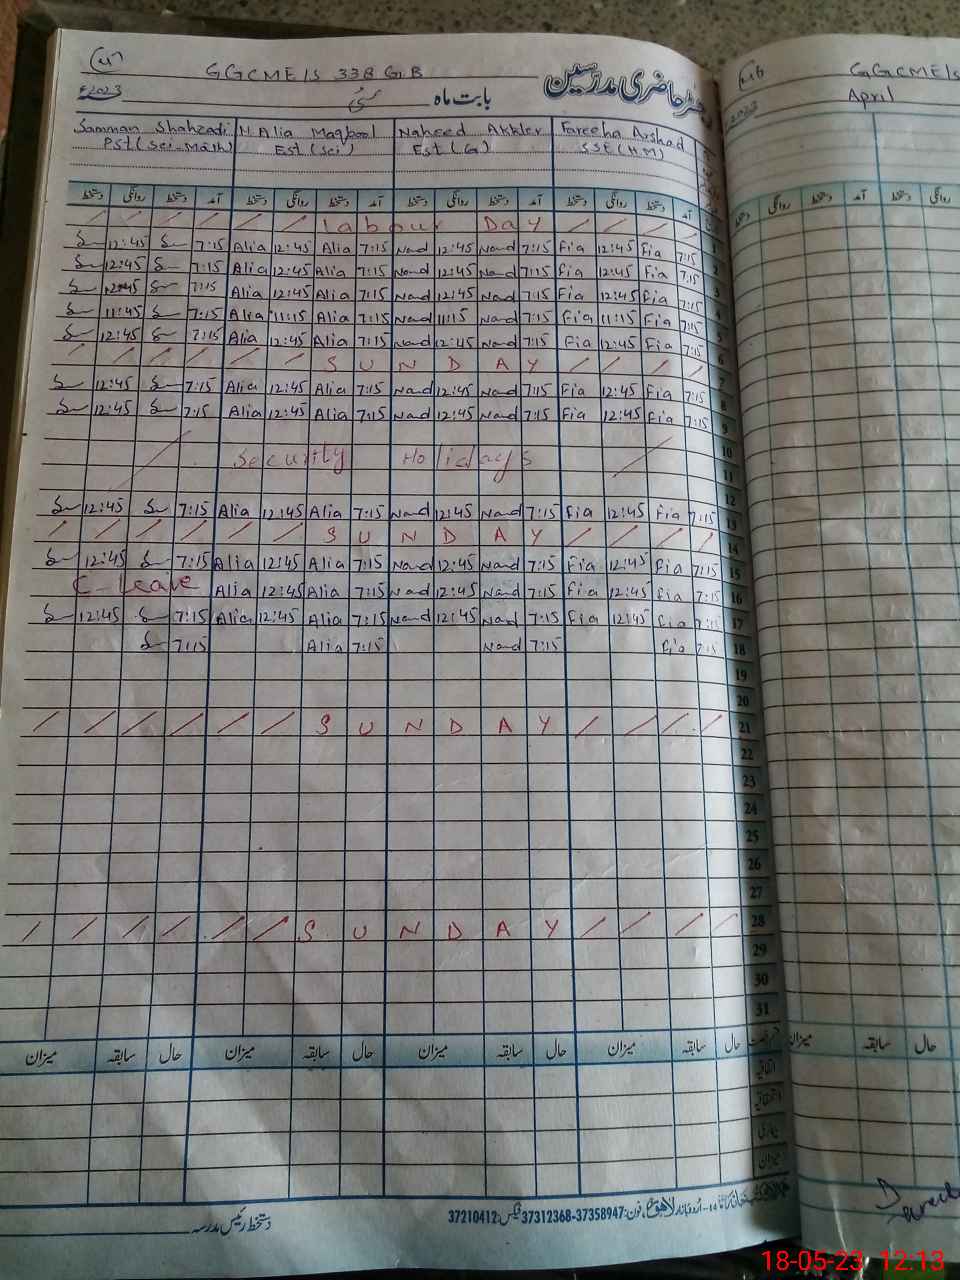 GGCME/S 338 GB
حاضری مدرسین
2023ء
بابت ماہ مئی
Samman Shahzadi N Alia Maqbool Naheed Akhter Fareeha Arshad
PST (Sci-Math) Est (Sci) Est (G) SSE (HM)
دستخط روانگی دستخط آمد دستخط روانگی دستخط آمد دستخط روانگی دستخط آمد دستخط روانگی دستخط آمد
Labour Day 1
12:45 7:15 Alia 12:45 Alia 7:15 Nand 12:45 Nand 7:15 Fia 12:45 Fia 7:15 2
12:45 7:15 Alia 12:45 Alia 7:15 Nand 12:45 Nand 7:15 Fia 12:45 Fia 7:15 3
12:45 7:15 Alia 12:45 Alia 7:15 Nand 12:45 Nand 7:15 Fia 12:45 Fia 7:15 4
11:45 7:15 Alia 11:15 Alia 7:15 Nand 11:15 Nand 7:15 Fia 11:15 Fia 7:15 5
12:45 7:15 Alia 12:45 Alia 7:15 Nand 12:45 Nand 7:15 Fia 12:45 Fia 7:15 6
SUNDAY 7
12:45 7:15 Alia 12:45 Alia 7:15 Nand 12:45 Nand 7:15 Fia 12:45 Fia 7:15 8
12:45 7:15 Alia 12:45 Alia 7:15 Nand 12:45 Nand 7:15 Fia 12:45 Fia 7:15 9
10
Security Holidays 11
12
12:45 7:15 Alia 12:45 Alia 7:15 Nand 12:45 Nand 7:15 Fia 12:45 Fia 7:15 13
SUNDAY 14
12:45 7:15 Alia 12:45 Alia 7:15 Nand 12:45 Nand 7:15 Fia 12:45 Fia 7:15 15
C-leave Alia 12:45 Alia 7:15 Nand 12:45 Nand 7:15 Fia 12:45 Fia 7:15 16
12:45 7:15 Alia 12:45 Alia 7:15 Nand 12:45 Nand 7:15 Fia 12:45 Fia 7:15 17
7:15 Alia 7:15 Nand 7:15 Fia 7:15 18
19
20
SUNDAY 21
22
23
24
25
26
27
SUNDAY 28
29
30
31
میزان سابقہ حال میزان سابقہ حال میزان سابقہ حال میزان سابقہ حال
اتفاقیہ
بیماری
میزان
دستخط رئیس مدرسہ
اردو بازار لاہور، فون: 37358947-37312368 فیکس: 37210412
GGCME/S
2023
April
دستخط روانگی دستخط آمد دستخط روانگی
میزان سابقہ حال
18-05-23 12:13